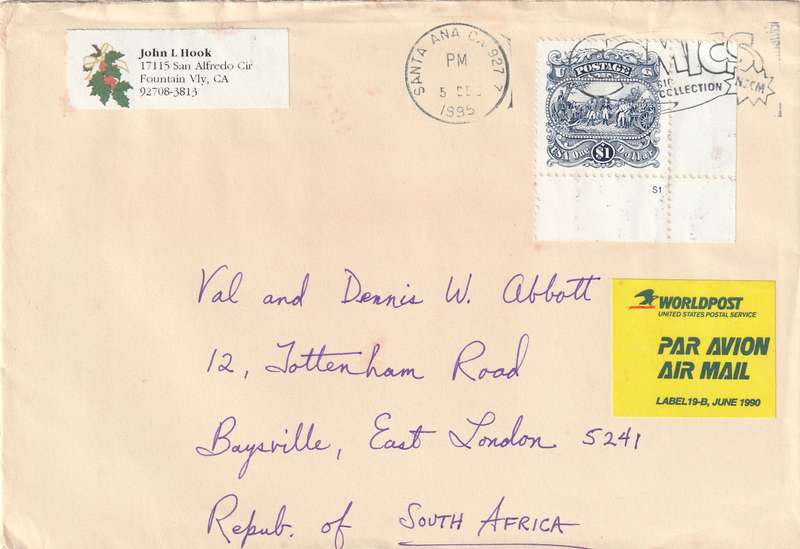 John I. Hook
17115 San Alfredo Cir
Fountain Vly, CA
92708-3813
SANTA ANA CA 927
PM
5 DEC
1995
COLLECTION
U POSTAGE S
USA One $1 Dollar
S1
Val and Dennis W. Abbott
12, Tottenham Road
Baysville, East London 5241
Repub. of SOUTH AFRICA
WORLDPOST
UNITED STATES POSTAL SERVICE
PAR AVION
AIR MAIL
LABEL 19-B, JUNE 1990